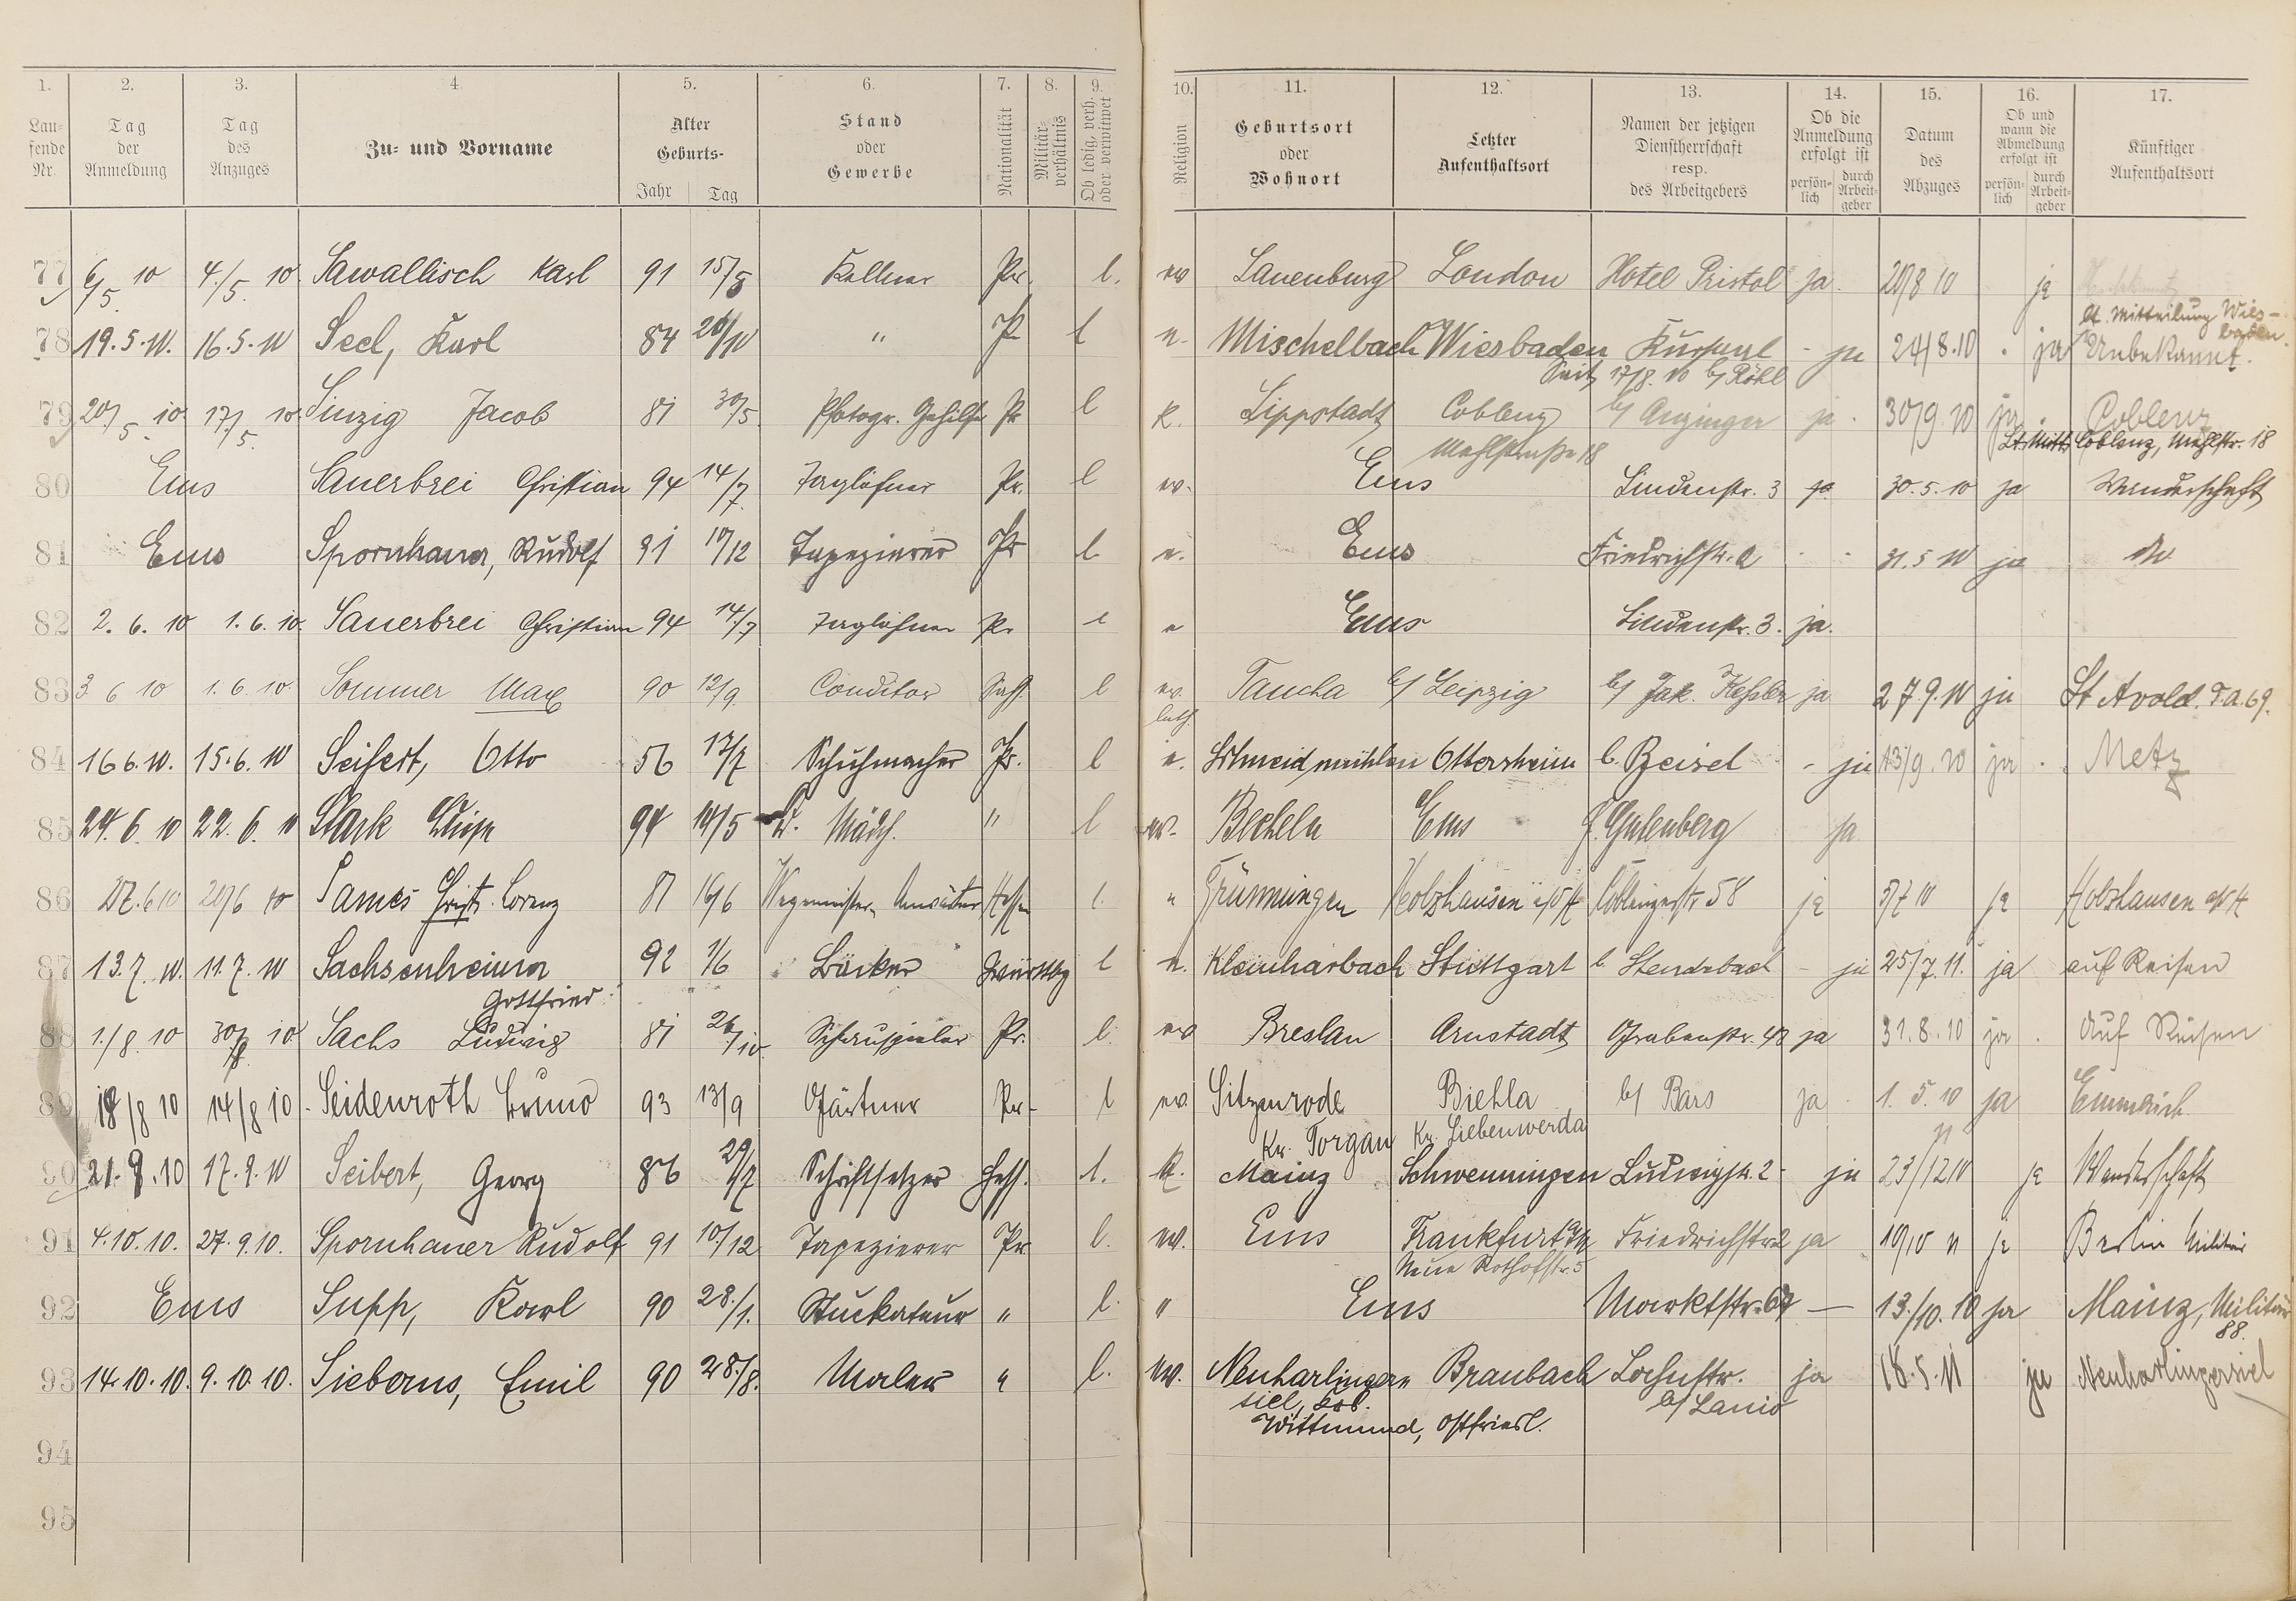 1. 2. 3. 4. 5. 6. 7. 8. 9. 10. 11. 12. 13. 14. 15. 16. 17.
Lau-
fende
Nr.
Tag
der
Anmeldung
Tag
des
Anzuges
Zu- und Vorname
Alter
Geburts-
Jahr Tag
Stand
oder
Gewerbe
Nationalität
Militär-
verhältnis
Ob ledig, verh.
oder verwitwet
Religion
Geburtsort
oder
Wohnort
Letzter
Aufenthaltsort
Namen der jetzigen
Dienstherrschaft
resp.
des Arbeitgebers
Ob die
Anmeldung
erfolgt ist
persön-
lich
durch
Arbeit-
geber
Datum
des
Abzuges
Ob und
wann die
Abmeldung
erfolgt ist
persön-
lich
durch
Arbeit-
geber
Künftiger
Aufenthaltsort
77 6/5 10 4./5. 10. Sawallisch Karl 91 15/8 Kellner Pr. l. ev Lauenburg London Hotel Pristol ja. 20/8 10 ja
lt. Mitteilung Wies-
baden.
78 19.5.10. 16.5.10 Seel, Karl 84 Pr l e. Mischelbach Wiesbaden Kursaal - ja 24/8.10 . ja Unbekannt.
Seit 17/8. 10 b/ Röhl
79 20/5. 10. 17/5. 10. Sinzig Jacob 81 30/5. Photogr. Gehilfe Pr l K. Lippstadt Coblenz b/ Anzinger ja . 30/9. 10 ja . Coblenz
Mehlstraße 18
Lt. Mitt. Coblenz, Mehlstr. 18
80 Ems Sauerbrei Christian 94 14/7. Taglöhner Pr. l ev. Ems Lindenstr. 3 ja 30.5.10 ja Wanderschaft
81 Ems Spornhauer, Rudolf 91 10/12 Tapezierer Pr l e. Ems Friedrichstr. 2 - - 31.5.10 ja
82 2. 6. 10 1. 6. 10. Sauerbrei Christian 94 14/7 Taglöhner Pr l e Ems Lindenstr. 3. ja.
83 3 6 10 1. 6. 10. Sommer Max 90 12/9. Conditor l ev. luth. Taucha b/ Leipzig b/ Jak. Keßler ja 27.9.10 ja St Avold. F.A. 69.
84 16 6. 10. 15.6. 10 Seifert, Otto 56 17/7 Schuhmacher Pr. l e. Schneidmühlen Ottersheim b. Beisel - ja 13/9. 10 ja . . Metz
85 24. 6. 10 22. 6. 10 Stark 94 14/5 D. Mädch. " l ev. Becheln Ems Gutenberg ja
86 27.6 10 20/6 10 Sames Christ. Lorenz 87 16/6 Hessen l. " Grünningen Holzhausen Coblenzerstr 58 ja 5/7 10 ja Holzhausen
87 13.7. 10. 11. 7. 10 Sachsenheimer 92 1/6 Bäcker Württbg l e. Kleinharbach Stuttgart b. Stendebach - ja 25/7. 11. ja auf Reisen
Gottfried
88 1./8. 10 30/7 10 Sachs Ludwig 81 26/10 Schauspieler Pr. l. ev Breslau Arnstadt Grabenstr. 40 ja 31. 8. 10 ja . Auf Reisen
89 18/8 10 14/8 10 Seidenroth Bruno 93 13/9 Gärtner Pr. l ev. Sitzenrode Biehla b/ Bars ja . 1. 5. 10 ja Emmerich
Kr. Torgau Kr. Liebenwerda
90 21.9.10 17.9.10 Seibert, Georg 86 29/7 Schriftsetzer Hess. l. K. Mainz Schwenningen Ludwigstr. 2 - ja 23/12 10 ja Wanderschaft
91 4.10.10. 27.9.10. Spornhauer Rudolf 91 10./12 Tapezierer Pr l. ev. Ems Frankfurt a/M Friedrichstr. 2 ja 10/10 11 ja Berlin Militär
Neue Rothofstr. 5
92 Ems Supp, Karl 90 28./1. Stuckateur " l. " Ems Marktstr. 67 — 13./10. 10 ja Mainz, Militär
88.
93 14.10.10. 9. 10 10. Sieborns, Emil 90 28./8. Maler " l. ev. Neuharlinger Braubach Lahnstr. ja 16. 5. 11 ja Neuharlingersiel
siel, b/ Lanio
Wittmund, Ostfriesl.
94
95